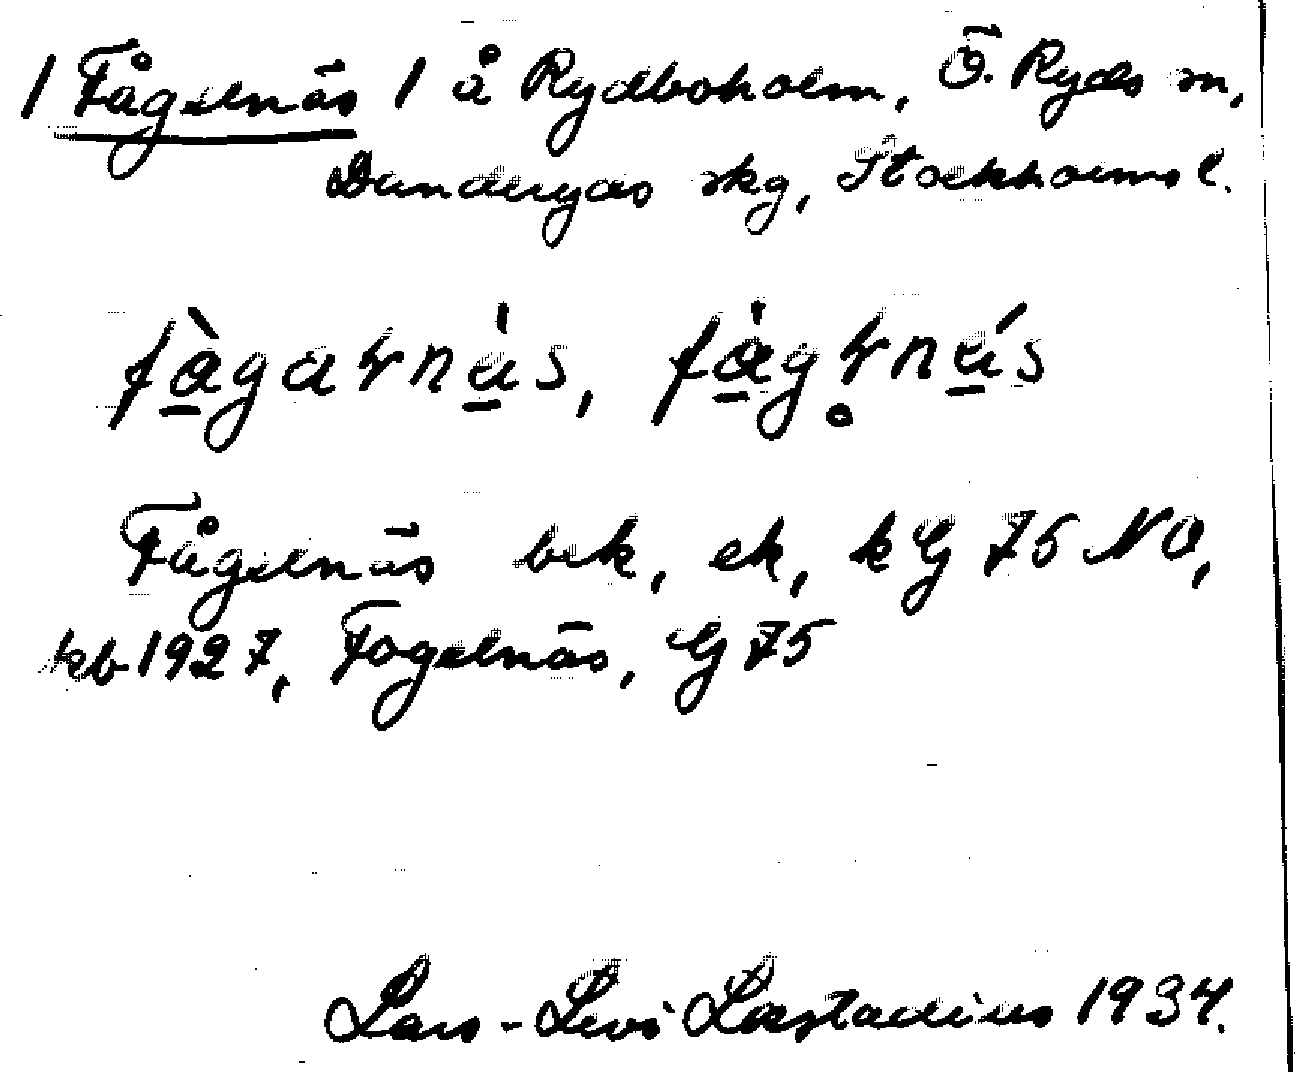 1 Fågelnäs 1 å Rydboholm, Ö. Ryds sn,
Danderyds skg, Stockholms l.
fàgaɽnás, fágɽ̥nás
Fågelnäs bek, ek, k G 75 NO,
kb 1927, Fogelnäs, G 75
Lars-Levi Læstadius 1934.